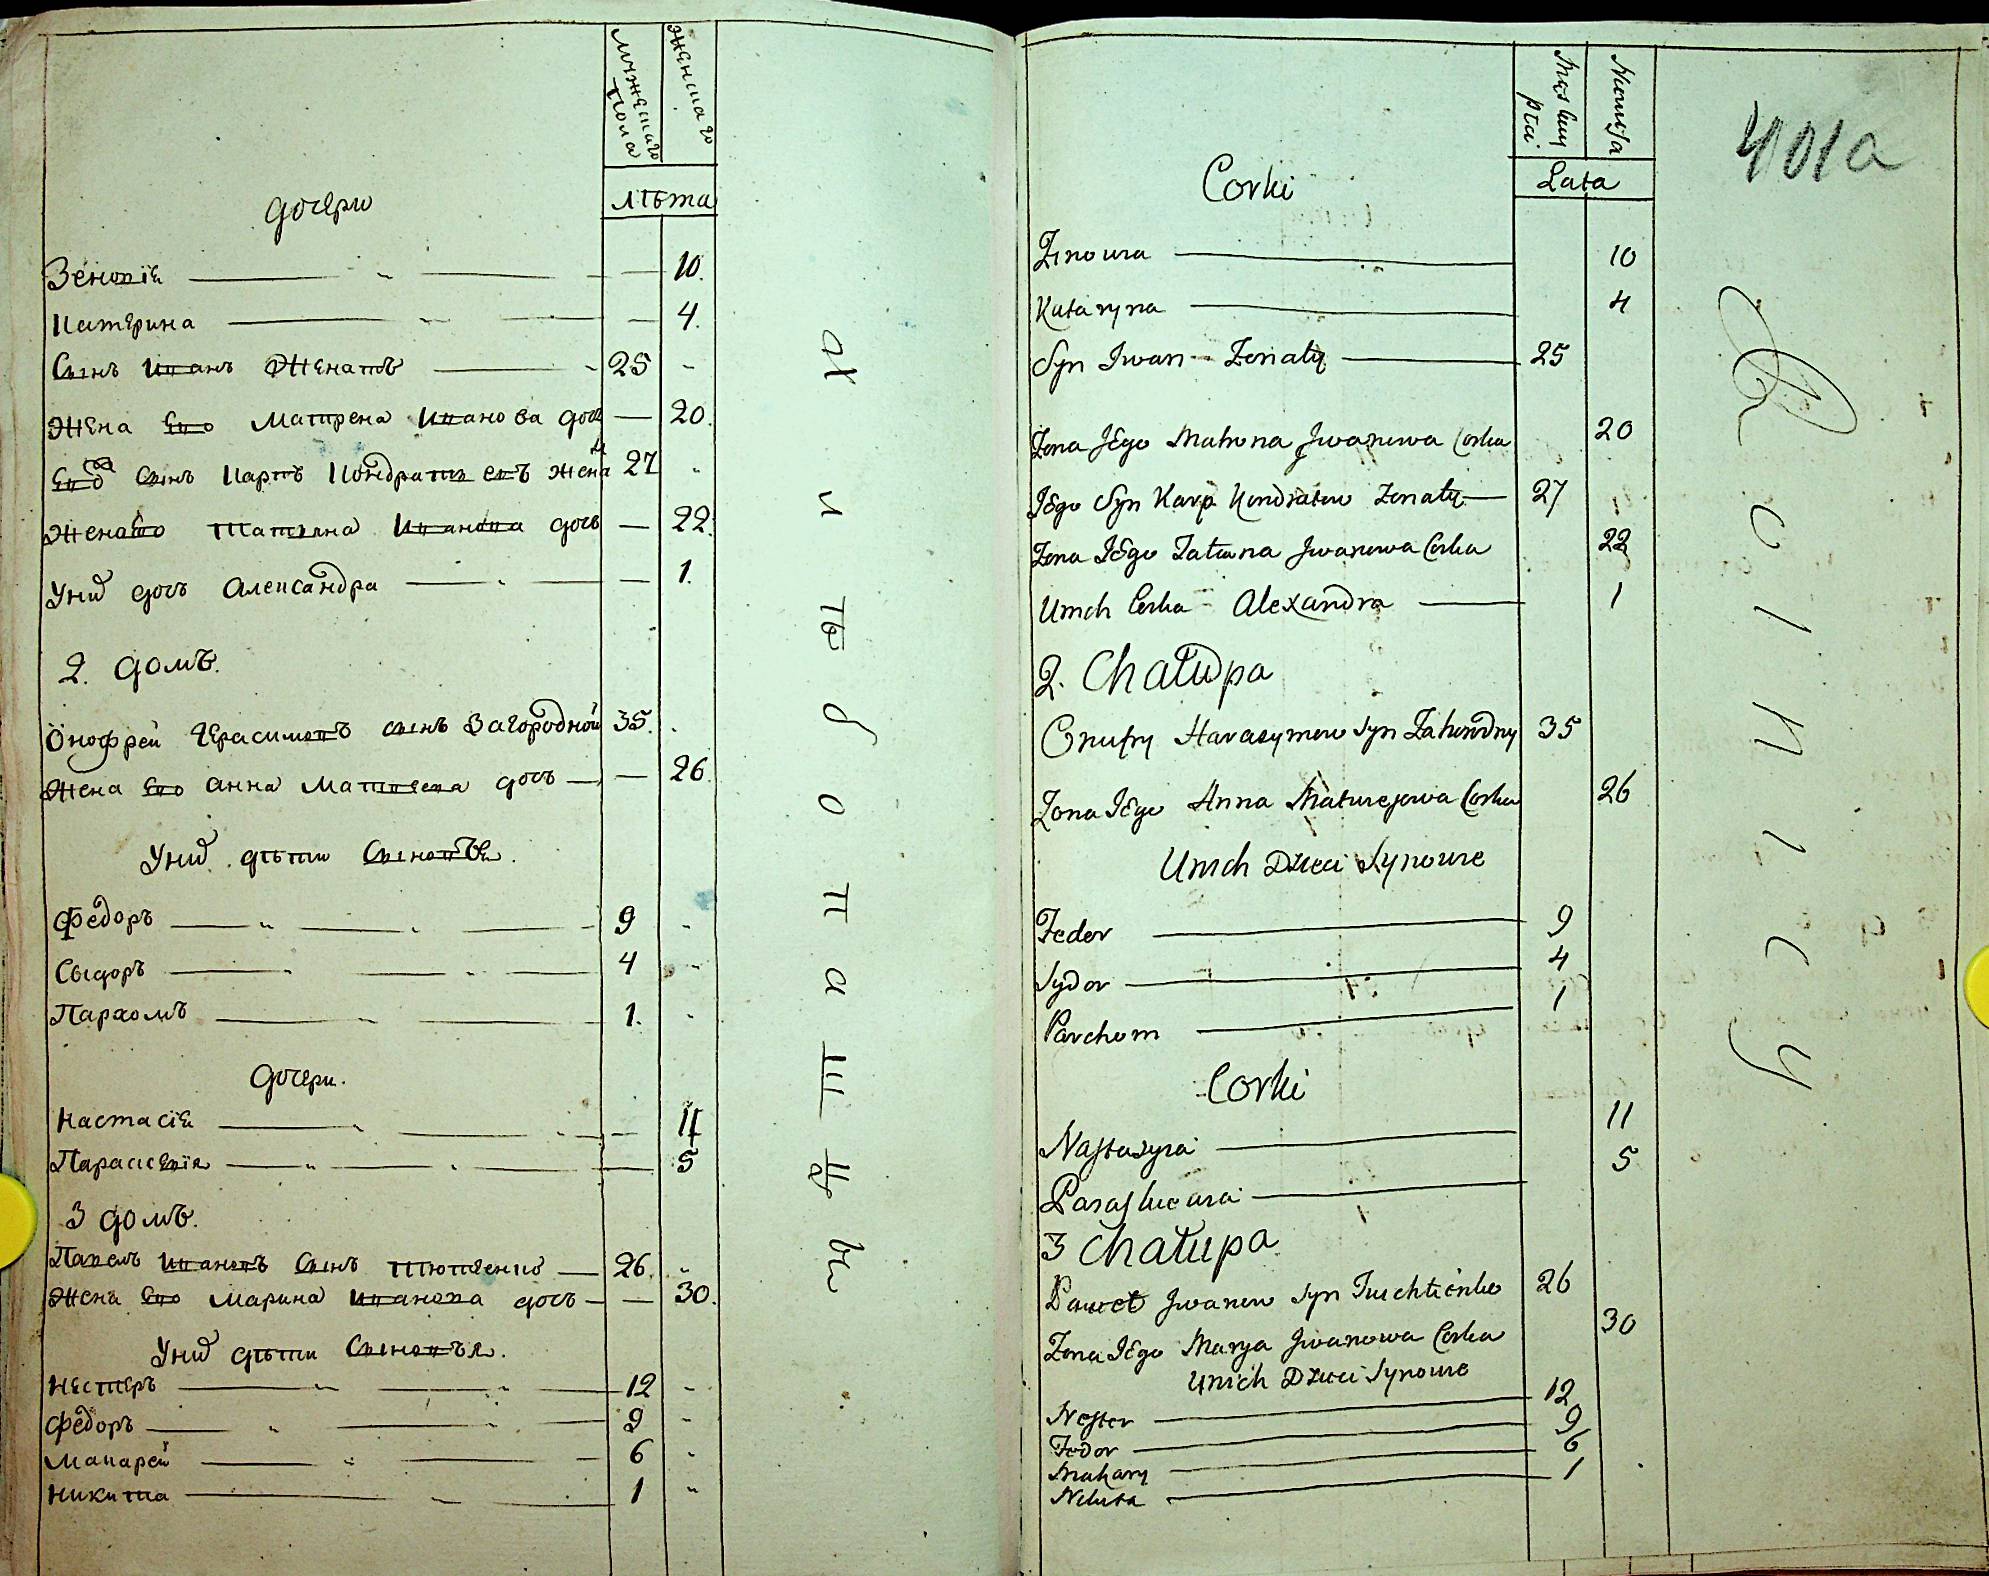 мужескаго пола
женскаго
лѣта
дочери
Зеновіѧ 10.
Катерина 4.
Сынъ Иванъ Женатъ 25
Жена Его Матрена Иванова дочь 20.
Его сынъ Карпъ Кондратьевъ женатъ 27
Жена Его Татьяна Иванова дочь 22.
Уних дочь Александра 1.
2. домъ.
Онофрей Герасимовъ сынъ Загородной 35.
Жена Его Анна Матвеева дочь 26.
Уних дѣти Сыновьѧ.
Федоръ 9
Сыдоръ 4
Пархомъ 1.
Дочери.
Настасіѧ 11
Параскевіѧ 5
3 домъ.
Павелъ Ивановъ Сынъ Тютченко 26.
Жена Его Марина Иванова дочь 30.
Уних дѣти Сыновьѧ.
Нестеръ 12
Федоръ 9
Макарей 6
Никита 1
хлѣбопашцы
Męskiey płci
Niewieſsa
Lata
401a
Corki
Zinowia 10
Kataryna 4
Syn Iwan Zonaty 25
Zona JEgo Matrona Jwanowa Corka 20
JEgo Syn Karp Kondratow Zonaty 27
Zona JEgo Tatiana Jwanowa Corka 22
Unich Corka Alexandra 1
2. Chałupa
Onufry Harasymow Syn Zahorodny 35
Zona JEgo Anna Matwiejowa Corka 26
Unich Dzieci Synowie
Fedor 9
Sydor 4
Parchom 1
Corki
Naſtasyia 11
Paraſkewia 5
3 Chałupa
Paweł Jwanow Syn Tiuchtienko 26
Zona JEgo Marya Jwanowa Corka 30
Unich Dzieci Synowie
Neſter 12
Fedor 9
Makary 6
Nikita 1
Rolnicy